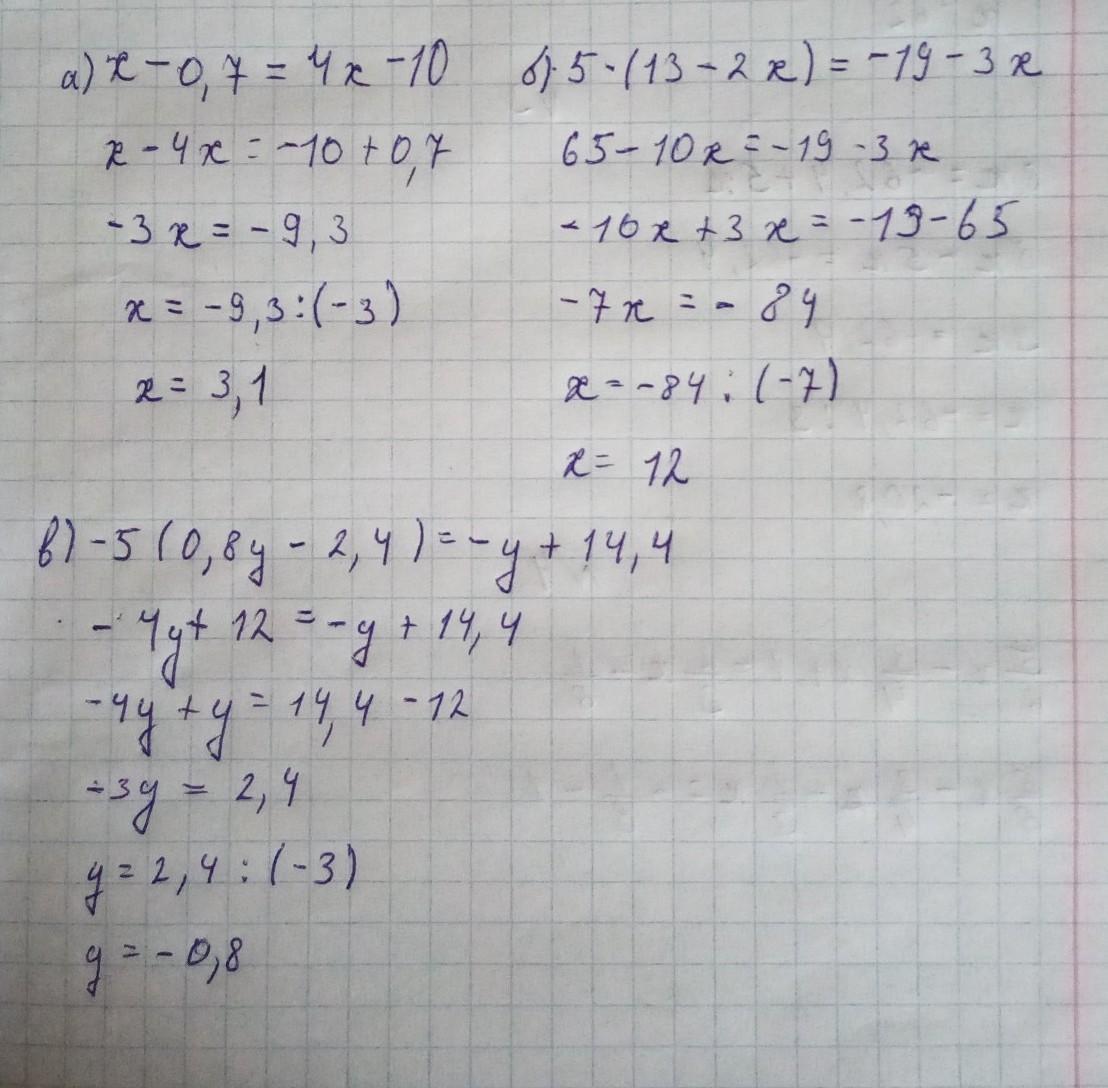 а) x - 0,7 = 4x - 10
x - 4x = -10 + 0,7
-3x = -9,3
x = -9,3 : (-3)
x = 3,1
б) 5 · (13 - 2x) = -19 - 3x
65 - 10x = -19 - 3x
-10x + 3x = -19 - 65
-7x = -84
x = -84 : (-7)
x = 12
в) -5 (0,8y - 2,4) = -y + 14,4
-4y + 12 = -y + 14,4
-4y + y = 14,4 - 12
-3y = 2,4
y = 2,4 : (-3)
y = -0,8